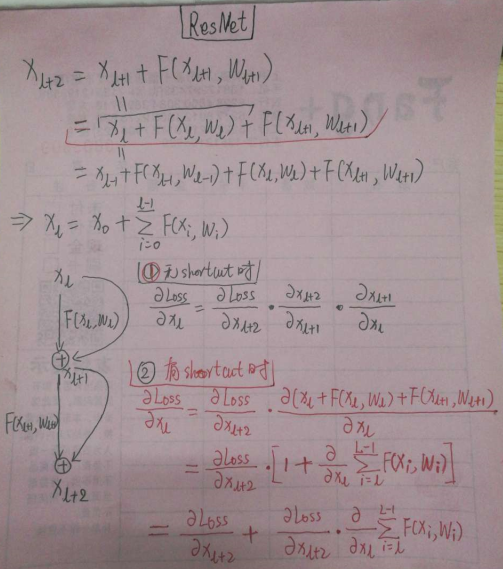 ResNet
X_{l+2} = X_{l+1} + F(X_{l+1}, W_{l+1})
= X_l + F(X_l, W_l) + F(X_{l+1}, W_{l+1})
= X_{l-1} + F(X_{l-1}, W_{l-1}) + F(X_l, W_l) + F(X_{l+1}, W_{l+1})
⇒ X_l = X_0 + ∑_{i=0}^{l-1} F(X_i, W_i)
X_l
F(X_l, W_l)
⊕
X_{l+1}
F(X_{l+1}, W_{l+1})
⊕
X_{l+2}
① 无shortcut时
∂Loss/∂X_l = ∂Loss/∂X_{l+2} · ∂X_{l+2}/∂X_{l+1} · ∂X_{l+1}/∂X_l
② 有shortcut时
∂Loss/∂X_l = ∂Loss/∂X_{l+2} · ∂(X_l + F(X_l, W_l) + F(X_{l+1}, W_{l+1}))/∂X_l
= ∂Loss/∂X_{l+2} · [1 + ∂/∂X_l ∑_{i=l}^{L-1} F(X_i, W_i)]
= ∂Loss/∂X_{l+2} + ∂Loss/∂X_{l+2} · ∂/∂X_l ∑_{i=l}^{L-1} F(X_i, W_i)